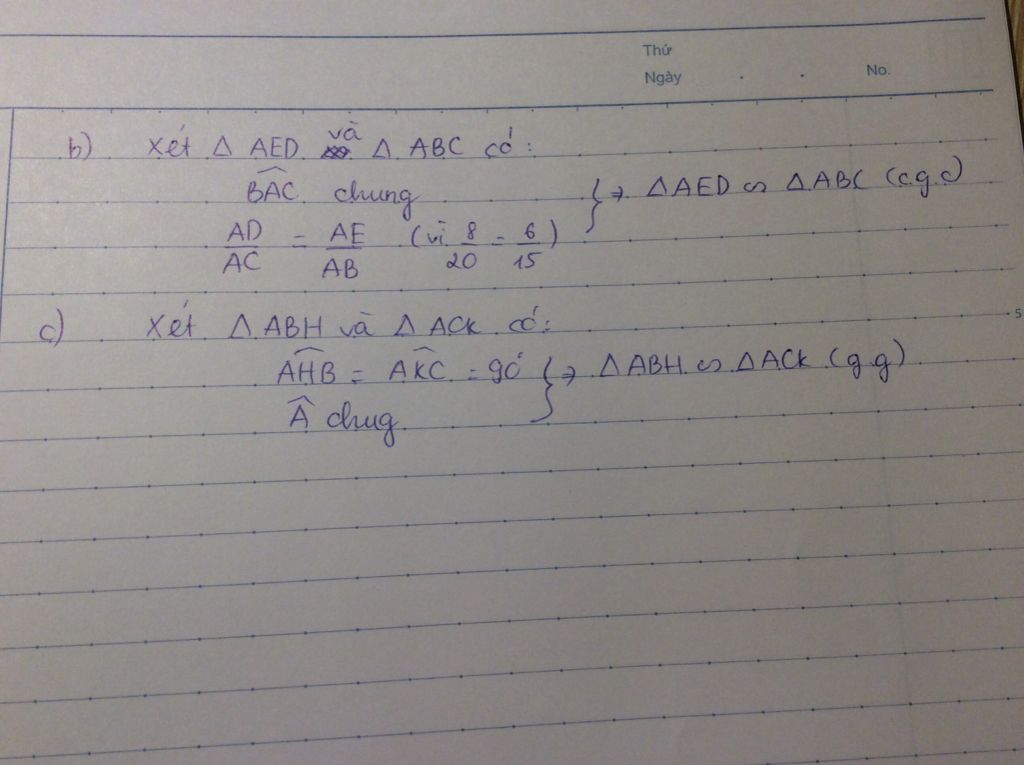 Thứ
Ngày . . No.
b) Xét Δ AED và Δ ABC có:
\widehat{BAC} chung
AD/AC = AE/AB (vì 8/20 = 6/15) } → ΔAED ∽ ΔABC (c.g.c)
5
c) Xét Δ ABH và Δ ACK có:
\widehat{AHB} = \widehat{AKC} = 90° } → ΔABH ∽ ΔACK (g.g)
\widehat{A} chug